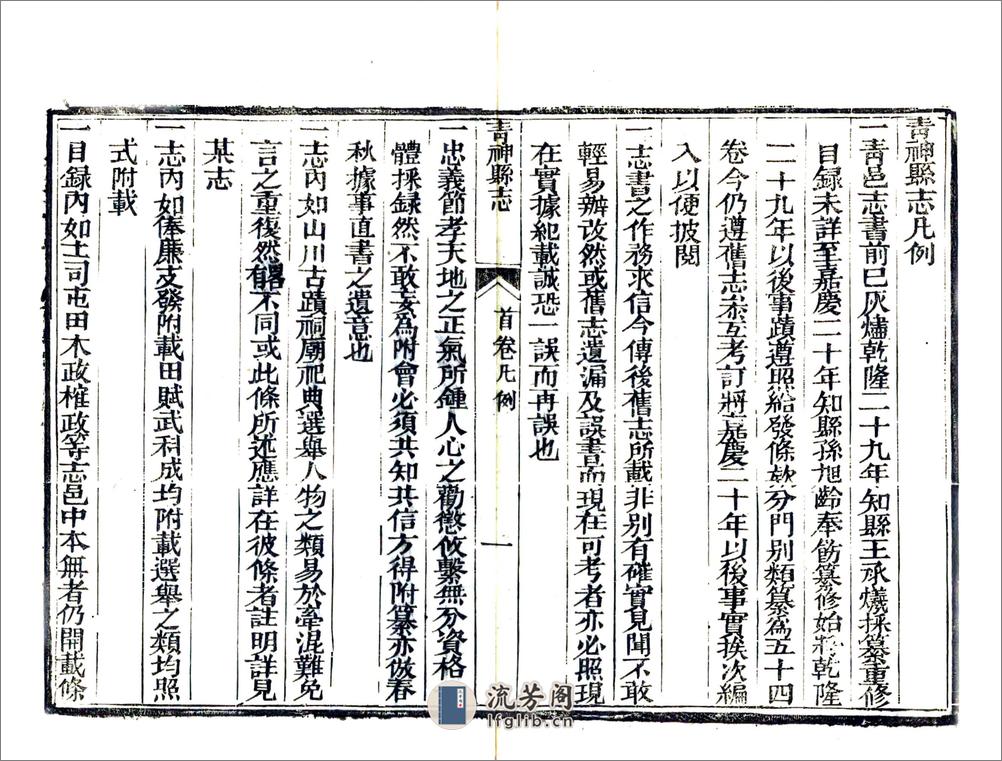 青神縣志凡例
一青邑志書前已灰燼乾隆二十九年知縣王承爔採纂重修
目録未詳至嘉慶二十年知縣孫旭齡奉飭纂修始將乾隆
二十九年以後事蹟遵照給發條欵分門別類纂爲五十四
卷今仍遵舊志叅互考訂將嘉慶二十年以後事實挨次編
入以便披閱
一志書之作務求信今傳後舊志所載非別有確實見聞不敢
輕易辦改然或舊志遺漏及誤書而現在可考者亦必照現
在實據紀載誠恐一誤而再誤也
青神縣志
首卷凡例
一
一忠義節孝天地之正氣所鍾人心之勸懲攸繫無分資格
體採録然不敢妄爲附會必須共知共信方得附纂亦倣春
秋據事直書之遺意也
一志內如山川古蹟祠廟祀典選舉人物之類易於牽混難免
言之重復然畧有不同或此條所述應詳在彼條者註明詳見
某志
一志內如俸廉支發附載田賦武科成均附載選舉之類均照
式附載
一目録內如土司屯田木政榷政等志邑中本無者仍開載條
流芳阁
lfglib.cn